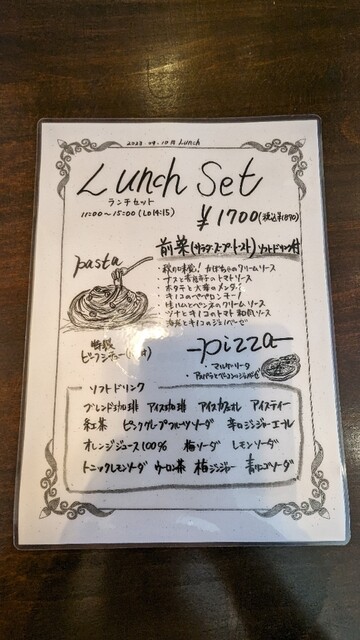 2023.09.10用 Lunch
Lunch Set
ランチセット
11:00〜15:00(LO14:15)
¥1700(税込¥1870)
前菜(サラダ・スープ・トースト)ソフトドリンク付
pasta
・秋の味覚! かぼちゃのクリームソース
・ナスとのトマトソース
・ホタテと大葉の
・キノコのペペロンチーノ
・生ハムとペンネのクリームソース
・ツナとキノコのトマト和風ソース
・海老とキノコのジェノベーゼ
特製
ビーフシチュー
-pizza-
・マルゲリータ
・アスパラとベーコンの
ソフトドリンク
ブレンド珈琲 アイス珈琲 アイスカフェオレ アイスティー
紅茶 ピンクグレープフルーツソーダ 辛口ジンジャーエール
オレンジジュース100% 梅ソーダ レモンソーダ
トニックレモンソーダ ウーロン茶 梅ジンジャー 青リンゴソーダ